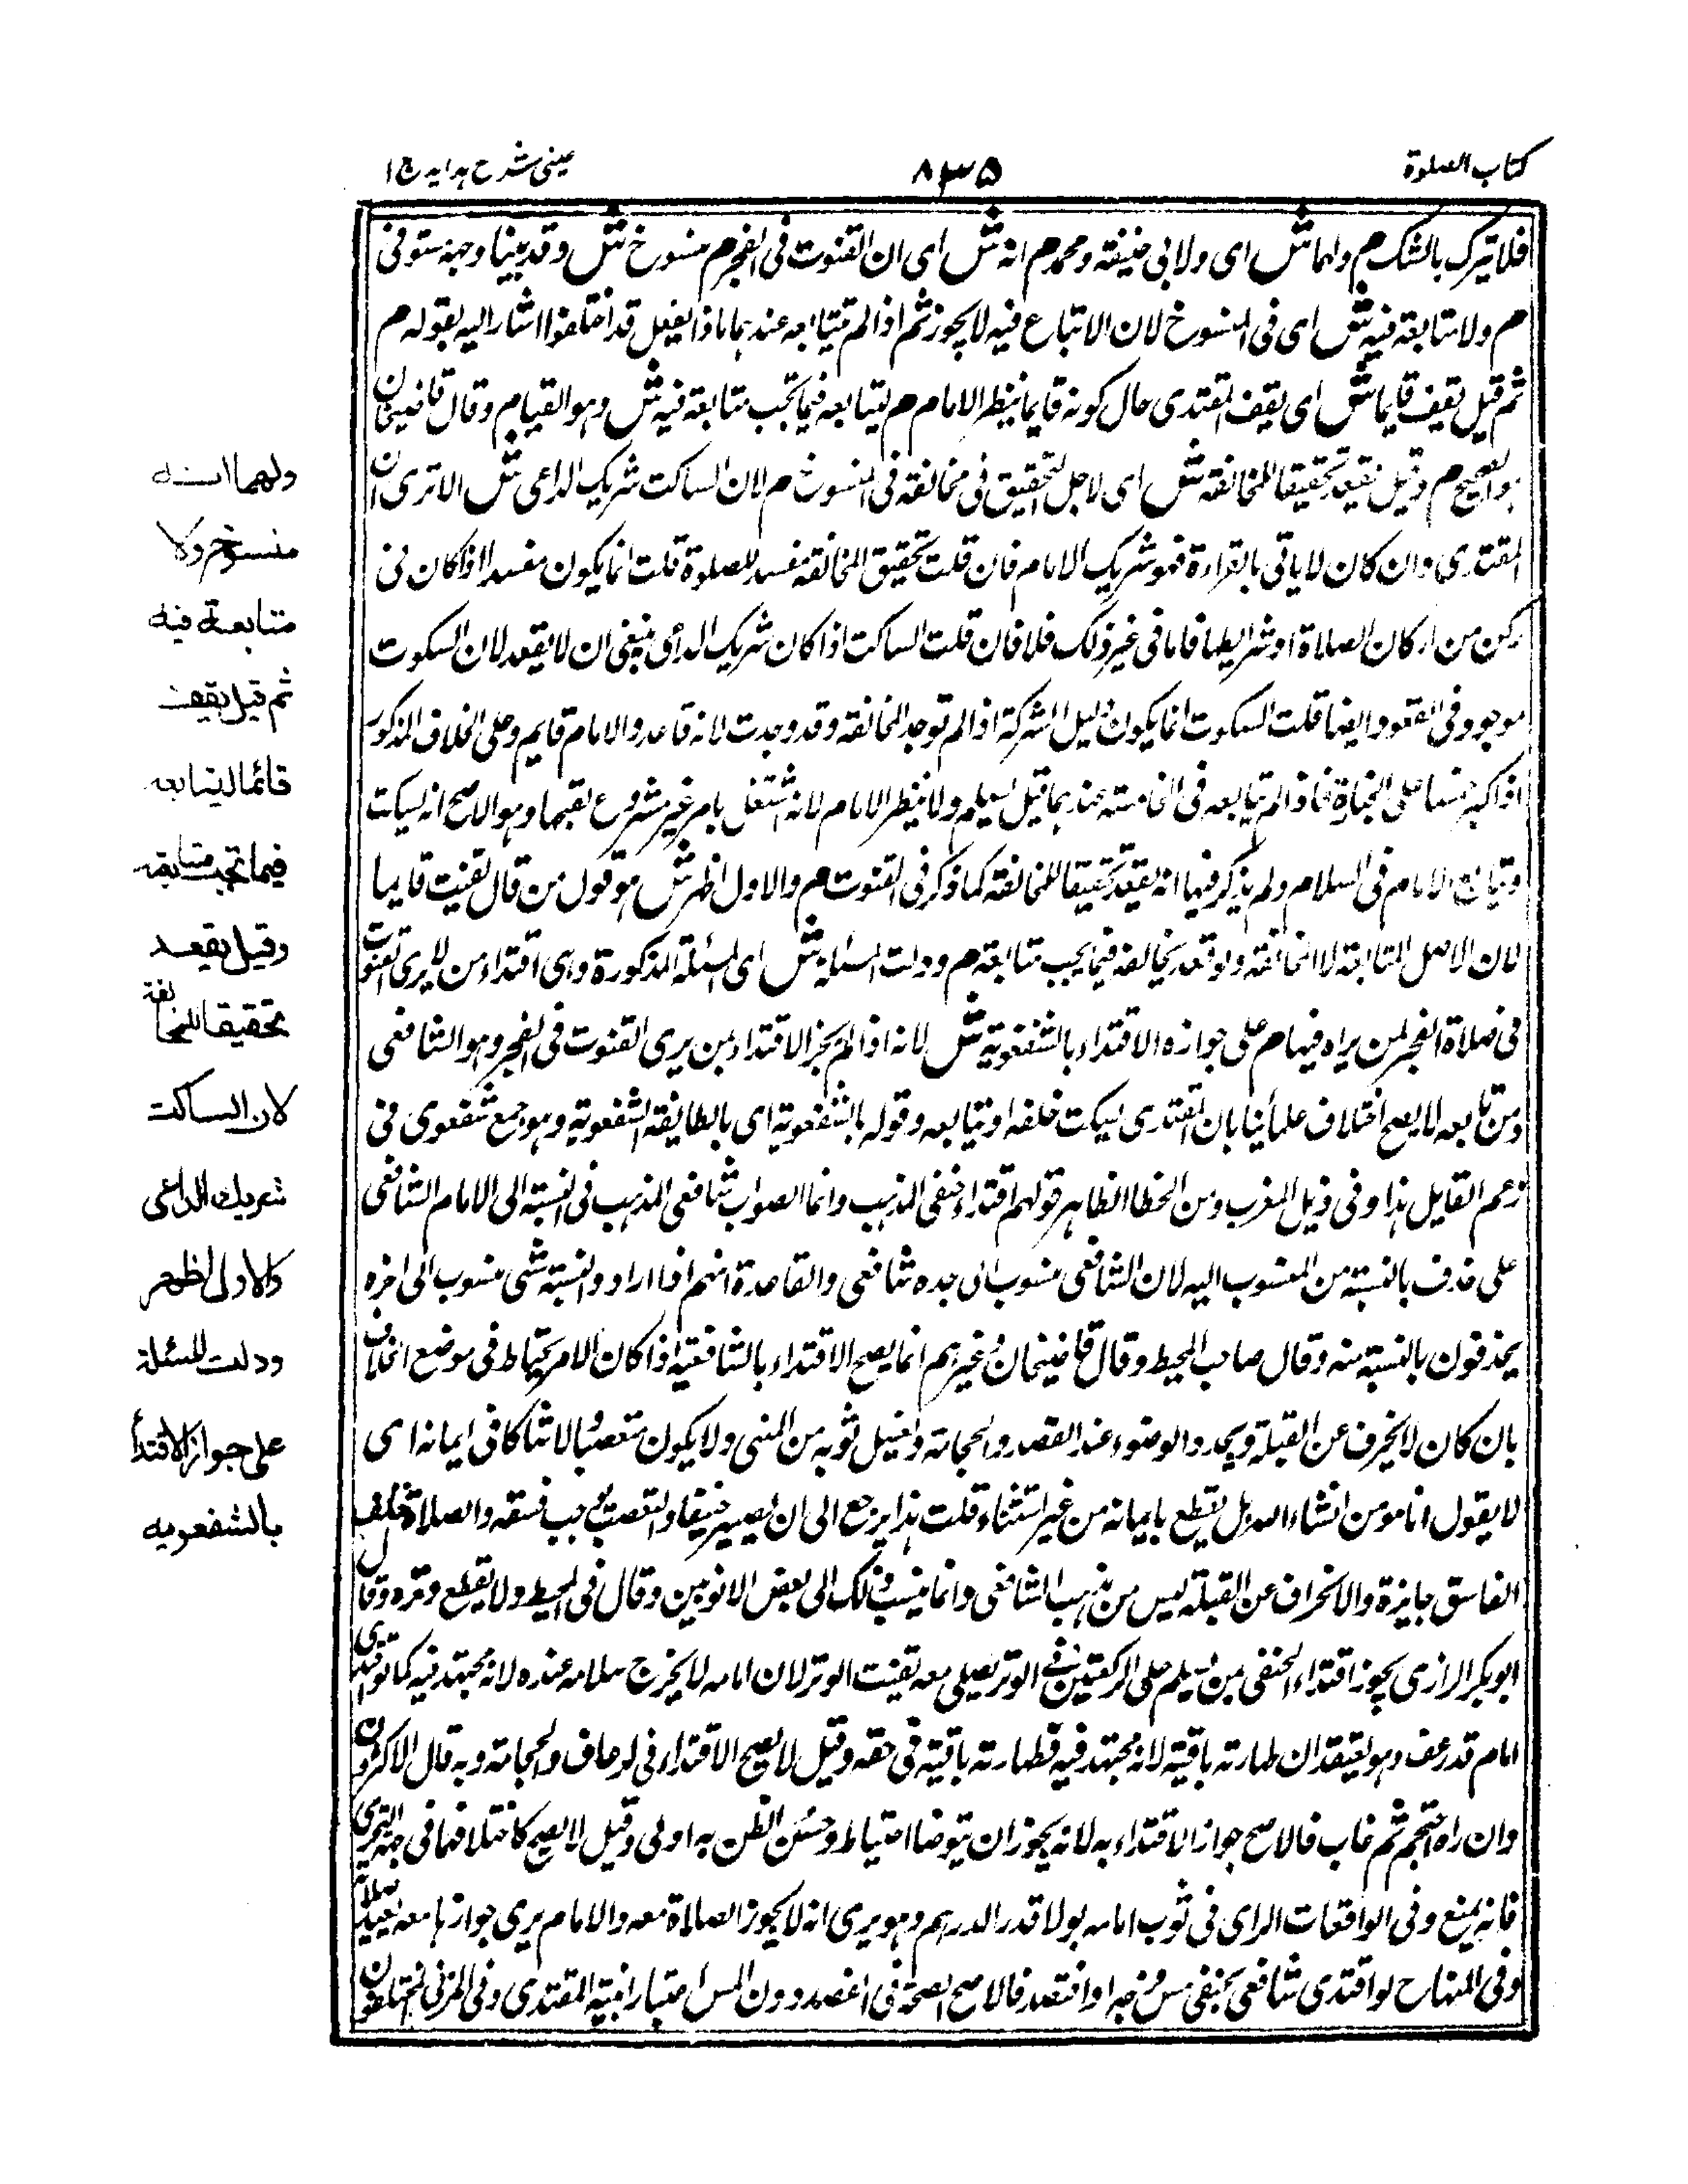 كتاب الصلوة
٨٣٥
عينى شرح هدايه ج ا
فلا يترك بالشك م ولهما ش اى ولابى حنيفة ومحمد م انه ش اى ان القنوت فى الفجر م منسوخ ش وقد بينا وجهه مستوفى
م ولا متابعة فيه ش اى فى المنسوخ لان الاتباع فيه لا يجوز ثم اذا لم يتابعه عندهما ماذا يفعل قد اختلفوا اشار اليه بقوله م
ثم قيل يقف قايما ش اى يقف المقتدى حال كونه قايما ينظر الامام م ليتابعه فيما تجب متابعة فيه ش وهو القيام م وقال قاضيخان
هو الصحيح م وقيل يقعد تحقيقا للمخالفة ش اى لاجل التحقيق فى مخالفة فى المنسوخ م لان الساكت شريك الداعى ش الا ترى ان
المقتدى وان كان لا ياتى بالقراءة فهو شريك الامام فان قلت تحقيق المخالفة مفسد للصلوة قلت انما يكون مفسدا اذا كان فى
ركن من اركان الصلاة او شرايطها فاما فى غير ذلك فلا فان قلت الساكت اذا كان شريك الداعى ينبغى ان لا يقعد لان السكوت
موجود فى القعود ايضا قلت السكوت انما يكون دليل الشركة اذا لم توجد المخالفة وقد وجدت لانه قاعد والامام قايم وعلى الخلاف المذكور
اذا كبر خمسا على الجنازة فاذا لم يتابعه فى الخامسة عندهما قيل يسلم ولا ينظر الامام لانه اشتغل بامر غير مشروع بقيها وهو الاصح انه يسكت
ويتابع الامام فى السلام ولم يذكر فيها انه يقعد تحقيقا للمخالفة كما ذكر فى القنوت م والاول اظهر ش هو قول من قال يقنت قايما
لان الاصل المتابعة لا المخالفة ولو قعد يخالفه فيما يجب متابعته م ودلت المسئلة ش اى المسئلة المذكورة وهى اقتداء من لا يرى القنوت
فى صلاة الفجر لمن يراه فيها م على جوازه الاقتداء بالشفعوية ش لانه اذا لم يجز الاقتداء بمن يرى القنوت فى الفجر وهو الشافعى
ومن تابعه لا يصح اختلاف علمائنا بان المقتدى يسكت خلفه او يتابعه وقوله بالشفعوية اى بالطايفة الشفعوية وهو جمع شفعوى فى
زعم القايل هذا وفى ذيل المغرب ومن الخطا الظاهر قولهم اقتداء حنفى المذهب وانما الصواب شافعى المذهب فى النسبة الى الامام الشافعى
على حذف بالنسبة من المنسوب اليه لان الشافعى منسوب الى جده شافعى والقاعدة انهم اذا ارادوا نسبة شى منسوب الى اخره
يحذفون بالنسبة منه وقال صاحب المحيط وقال قاضيخان وغيرهم انما يصح الاقتداء بالشافعية اذا كان الامر يحتاط فى موضع الخلاف
بان كان لا ينحرف عن القبلة ويجدد الوضوء عند الفصد والحجامة ويغسل ثوبه من المنى ولا يكون متعصبا لا شاكا فى ايمانه اى
لا يقول انا مومن انشاء الله بل يقطع بايمانه من غير استثناء قلت هذا يرجع الى ان يصير حنيفا والتعصب يوجب فسقه والصلاة خلف
الفاسق جايزة والانحراف عن القبلة ليس من مذهب الشافعى وانما ينسب ذلك الى بعض الانوبيين وقال فى المحيط ولا يقطع وتره وقال
ابوبكر الرازى يجوز اقتداء الحنفى بمن يسلم على الركعتين فى الوتر يصلى معه بقيت الوتر لان امامه لا يخرج بسلامه عنده لانه مجتهد فيه كما لو اقتدى
امام قد رعف وهو يعتقد ان طهارته باقية لانه مجتهد فيه فطهارته باقية فى حقه وقيل لا يصح الاقتداء فى الرعاف والحجامة وبه قال الاكثرون
وان راه احتجم ثم غاب فالاصح جواز الاقتداء به لانه يجوز ان يتوضا احتياط وحسن الظن به اولى وقيل لا يصح كاختلافهما فى جهة التحرى
فانه يمنع وفى الواقعات الراى فى ثوب امامه بولا قدر الدرهم وهو يرى انه لا يجوز الصلاة معه والامام يرى جوازها معه يعيد صلاته
وفى المنهاج لو اقتدى شافعى بحنفى مس فرجه او افتصد فالاصح الصحة فى الفصد دون المس اعتبارا بنية المقتدى وفى
ولهما انه
منسوخ ولا
متابعة فيه
ثم قيل يقف
قائما ليتابعه
فيما تجب متابعته
وقيل يقعد
تحقيقا للمخالفة
لان الساكت
شريك الداعى
والاول اظهر
ودلت المسئلة
على جواز الاقتداء
بالشفعويه